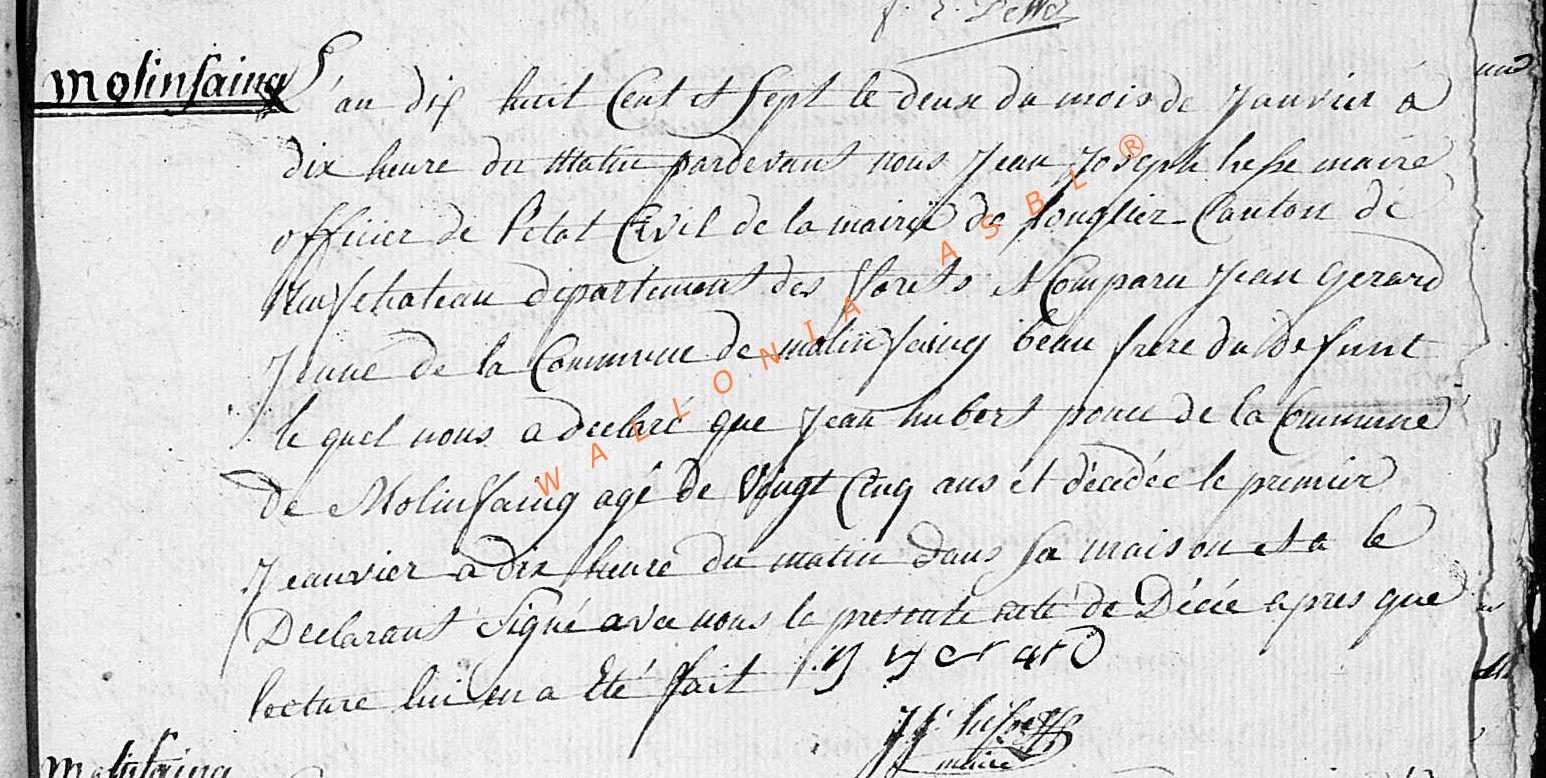 Molinfaing
L'an dix huit Cent et Sept le deux du mois de Janvier a
dix heure du Matin pardevant nous Jean Joseph hesse maire
officier de l'état Civil de la mairie de longlier Canton de
Neufchateau département des forets est Comparu Jean Gerard
Jeune de la Commune de molinfaing beau frere du Defunt
le quel nous a declaré que Jean hubert ponce de la Commune
De Molinfaing agé de Vingt Cinq ans et décedée le premier
Jeanvier a dix heure du matin dans Sa maison et a le
Declarant Signé avec nous le presente acte de Décée apres que
lecture lui en a Eté fait JJ Gerard
JJ hesse
maire
Molinfaing
WALLONIA ASBL ®